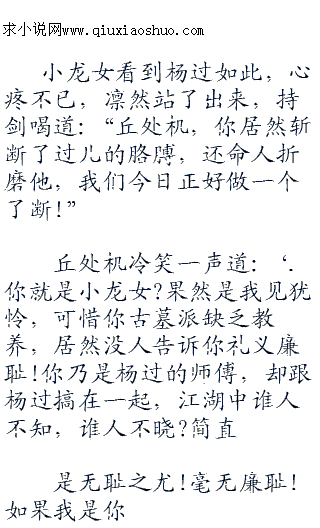 求小说网www.qiuxiaoshuo.com
小龙女看到杨过如此，心
疼不已，凛然站了出来，持
剑喝道：“丘处机，你居然斩
断了过儿的胳膊，还命人折
磨他，我们今日正好做一个
了断！”
丘处机冷笑一声道：‘.
你就是小龙女?果然是我见犹
怜，可惜你古墓派缺乏教
养，居然没人告诉你礼义廉
耻!你乃是杨过的师傅，却跟
杨过搞在一起，江湖中谁人
不知，谁人不晓?简直
是无耻之尤！毫无廉耻！
如果我是你